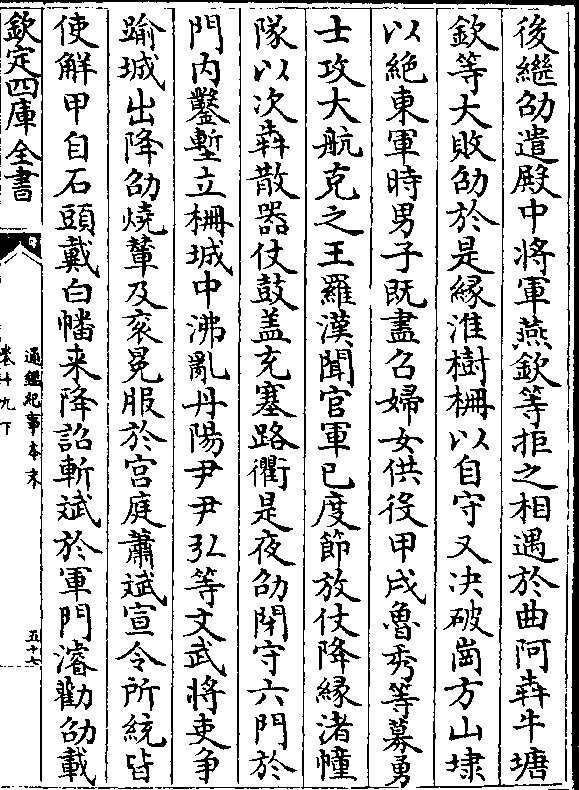 後繼劭遣殿中將軍燕欽等拒之相遇於曲阿犇牛塘
欽等大敗劭於是緣淮樹柵以自守又決破崗方山埭
以絕東軍時男子既盡召婦女供役甲戌魯秀等募勇
士攻大航克之王羅漢聞官軍已度節放仗降緣渚幢
隊以次犇散器仗鼓盖充塞路衢是夜劭閉守六門於
門内鑿塹立柵城中沸亂丹陽尹尹弘等文武將吏争
踰城出降劭燒輦及衮冕服於宫庭蕭斌宣令所統皆
使解甲自石頭戴白幡来降詔斬斌於軍門濬勸劭載
欽定四庫全書
通鑑紀事本末
卷十九下
五十七